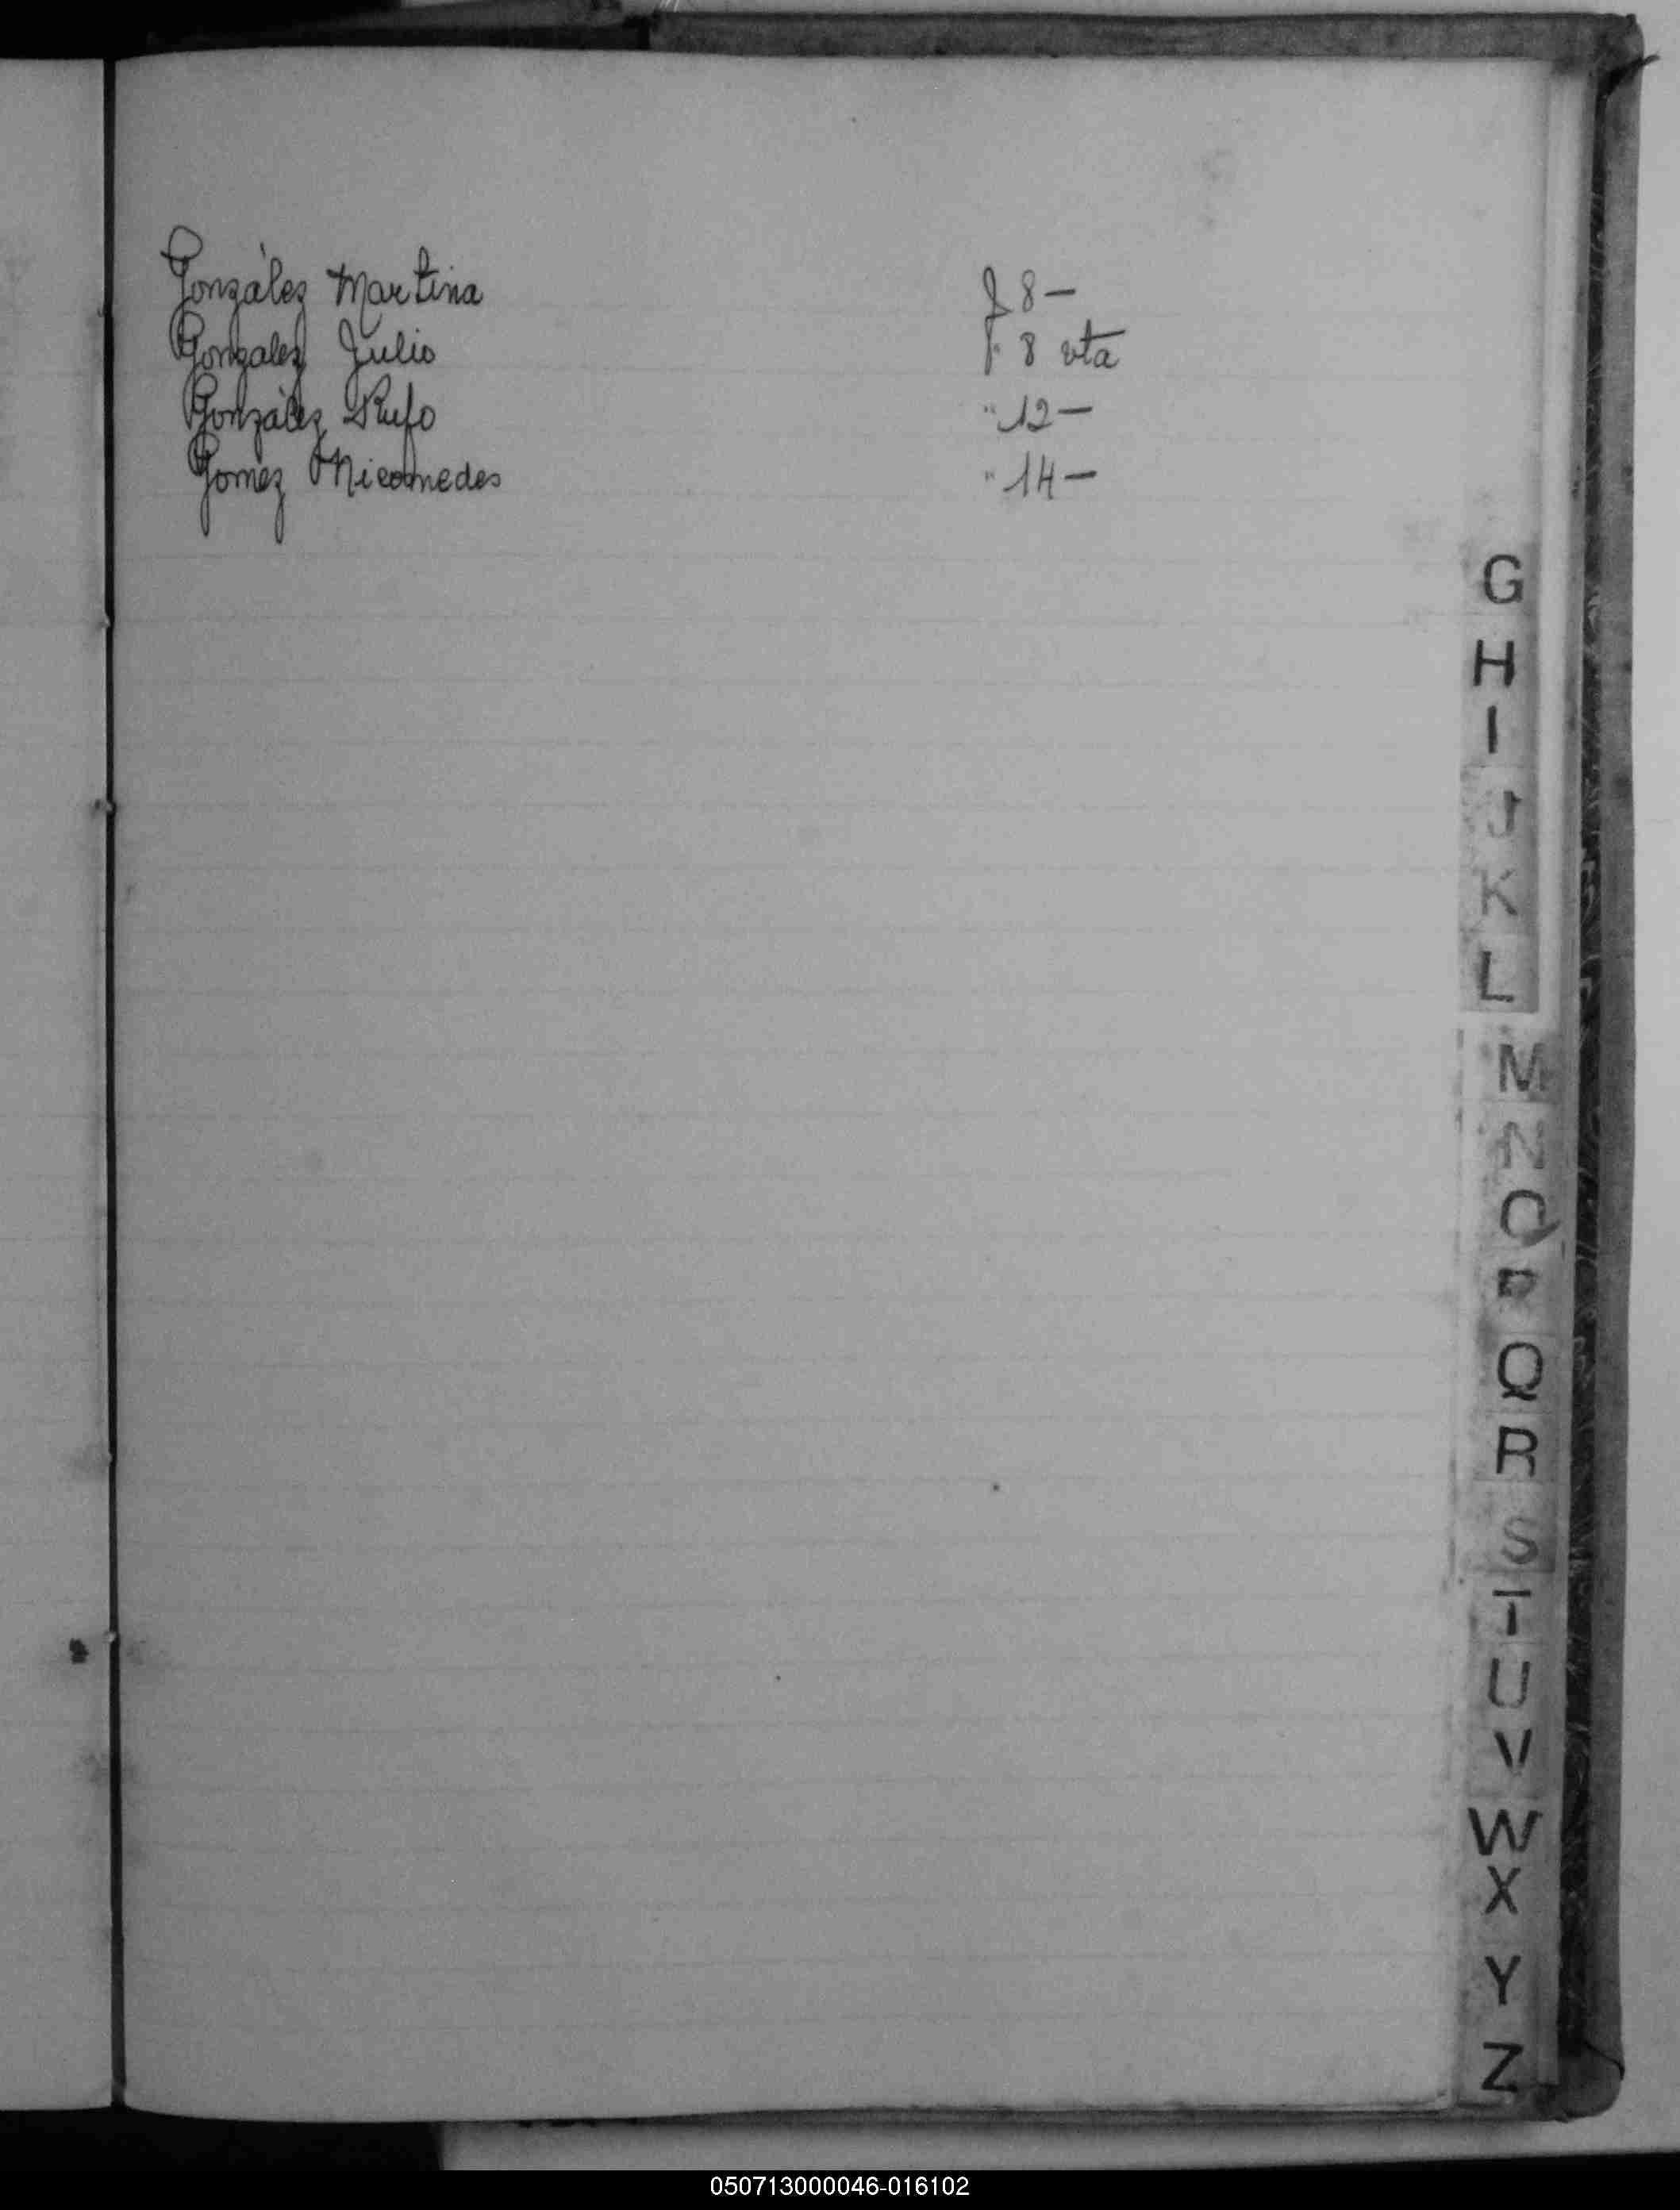 Gonzàlez Martina f 8 —
Gonzalez Julio f. 8 vta
Gonzàlez Rufo " 12 —
Gomez Nicomedes " 14 —
G
H
I
J
K
L
M
N
O
P
Q
R
S
T
U
V
W
X
Y
Z
050713000046-016102